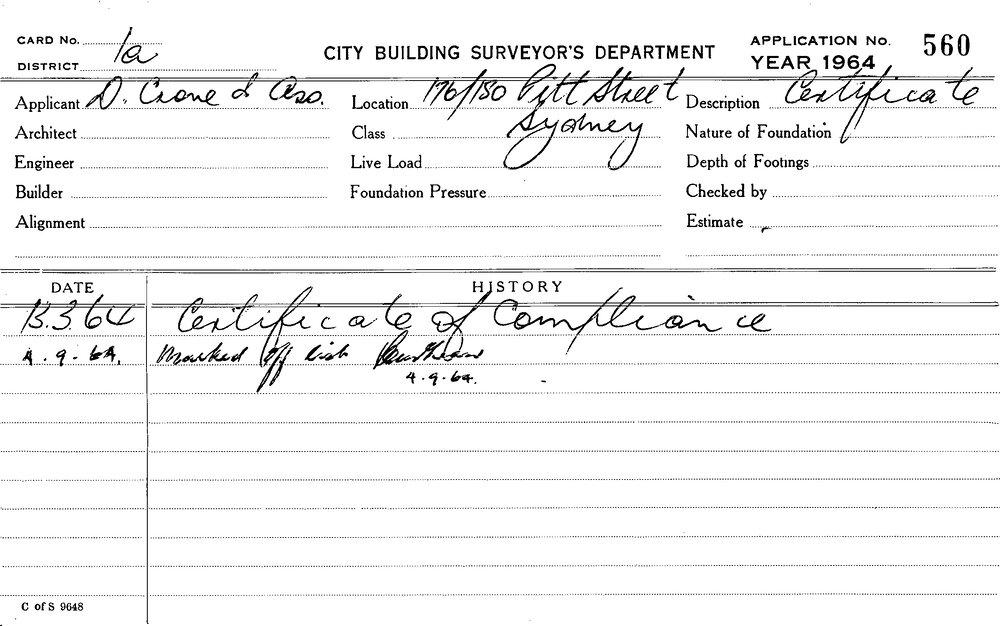 CARD No.
DISTRICT 1a
CITY BUILDING SURVEYOR'S DEPARTMENT
APPLICATION No. 560
YEAR 1964
Applicant D. Crone & Ass. Location 176/180 Pitt Street Description Certificate
Architect Class Sydney Nature of Foundation
Engineer Live Load Depth of Footings
Builder Foundation Pressure Checked by
Alignment Estimate
DATE HISTORY
13.3.64 Certificate of Compliance
4.9.64. Marked off list
4.9.64.
C of S 9648